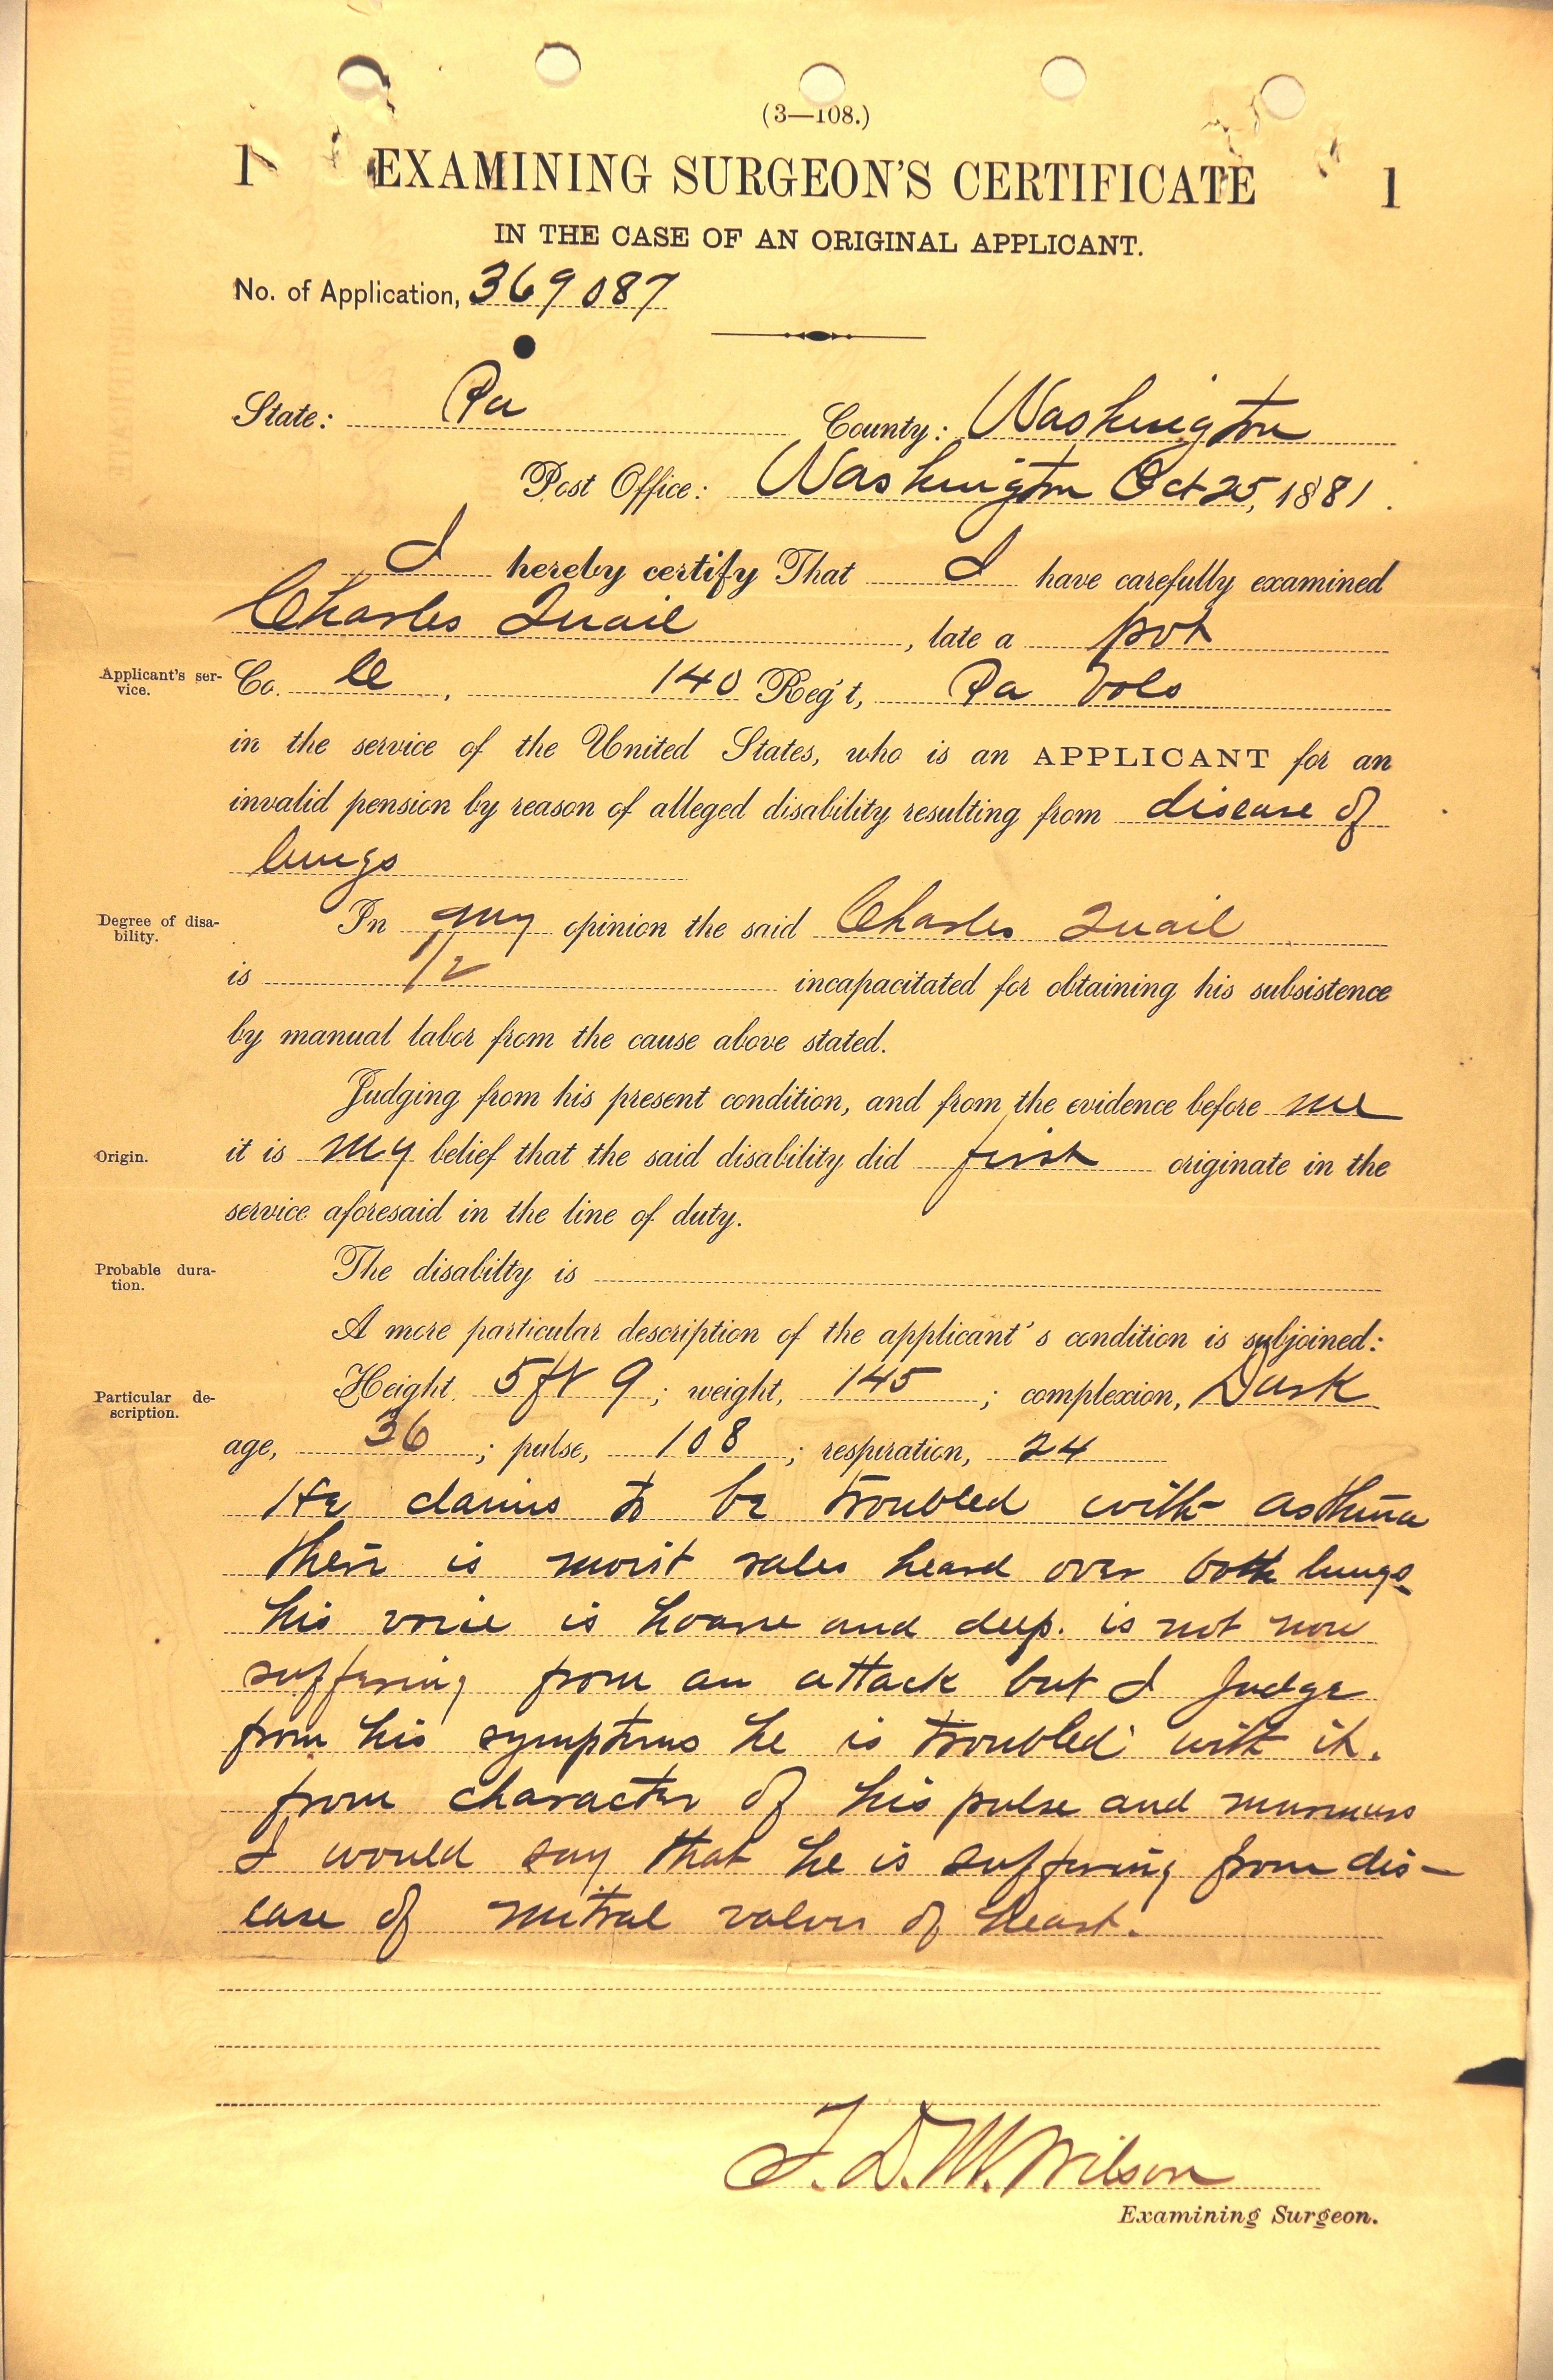 (3—108.)
1 EXAMINING SURGEON'S CERTIFICATE 1
IN THE CASE OF AN ORIGINAL APPLICANT.
No. of Application, 369087
State: Pa County: Washington
Post Office: Washington Oct 25, 1881.
I hereby certify That I have carefully examined
Charles Quail, late a pvt
Applicant's ser-
vice.
Co. , 140 Reg't, Pa Vols
in the service of the United States, who is an APPLICANT for an
invalid pension by reason of alleged disability resulting from disease of
lungs
Degree of disa-
bility.
In my opinion the said Charles Quail
is 1/2 incapacitated for obtaining his subsistence
by manual labor from the cause above stated.
Judging from his present condition, and from the evidence before me
Origin.
it is my belief that the said disability did first originate in the
service aforesaid in the line of duty.
Probable dura-
tion.
The disabilty is
A more particular description of the applicant's condition is subjoined:
Particular de-
scription.
Height, 5 ft 9; weight, 145; complexion, Dark
age, 36; pulse, 108; respiration, 24
He claims to be troubled with asthma
there is moist rales heard over both lungs
his voice is hoarse and deep. is not now
suffering from an attack but I judge
from his symptoms he is troubled with it.
from character of his pulse and murmurs
I would say that he is suffering from dis-
ease of mitral valves of heart.
F. D. M. Wilson
Examining Surgeon.